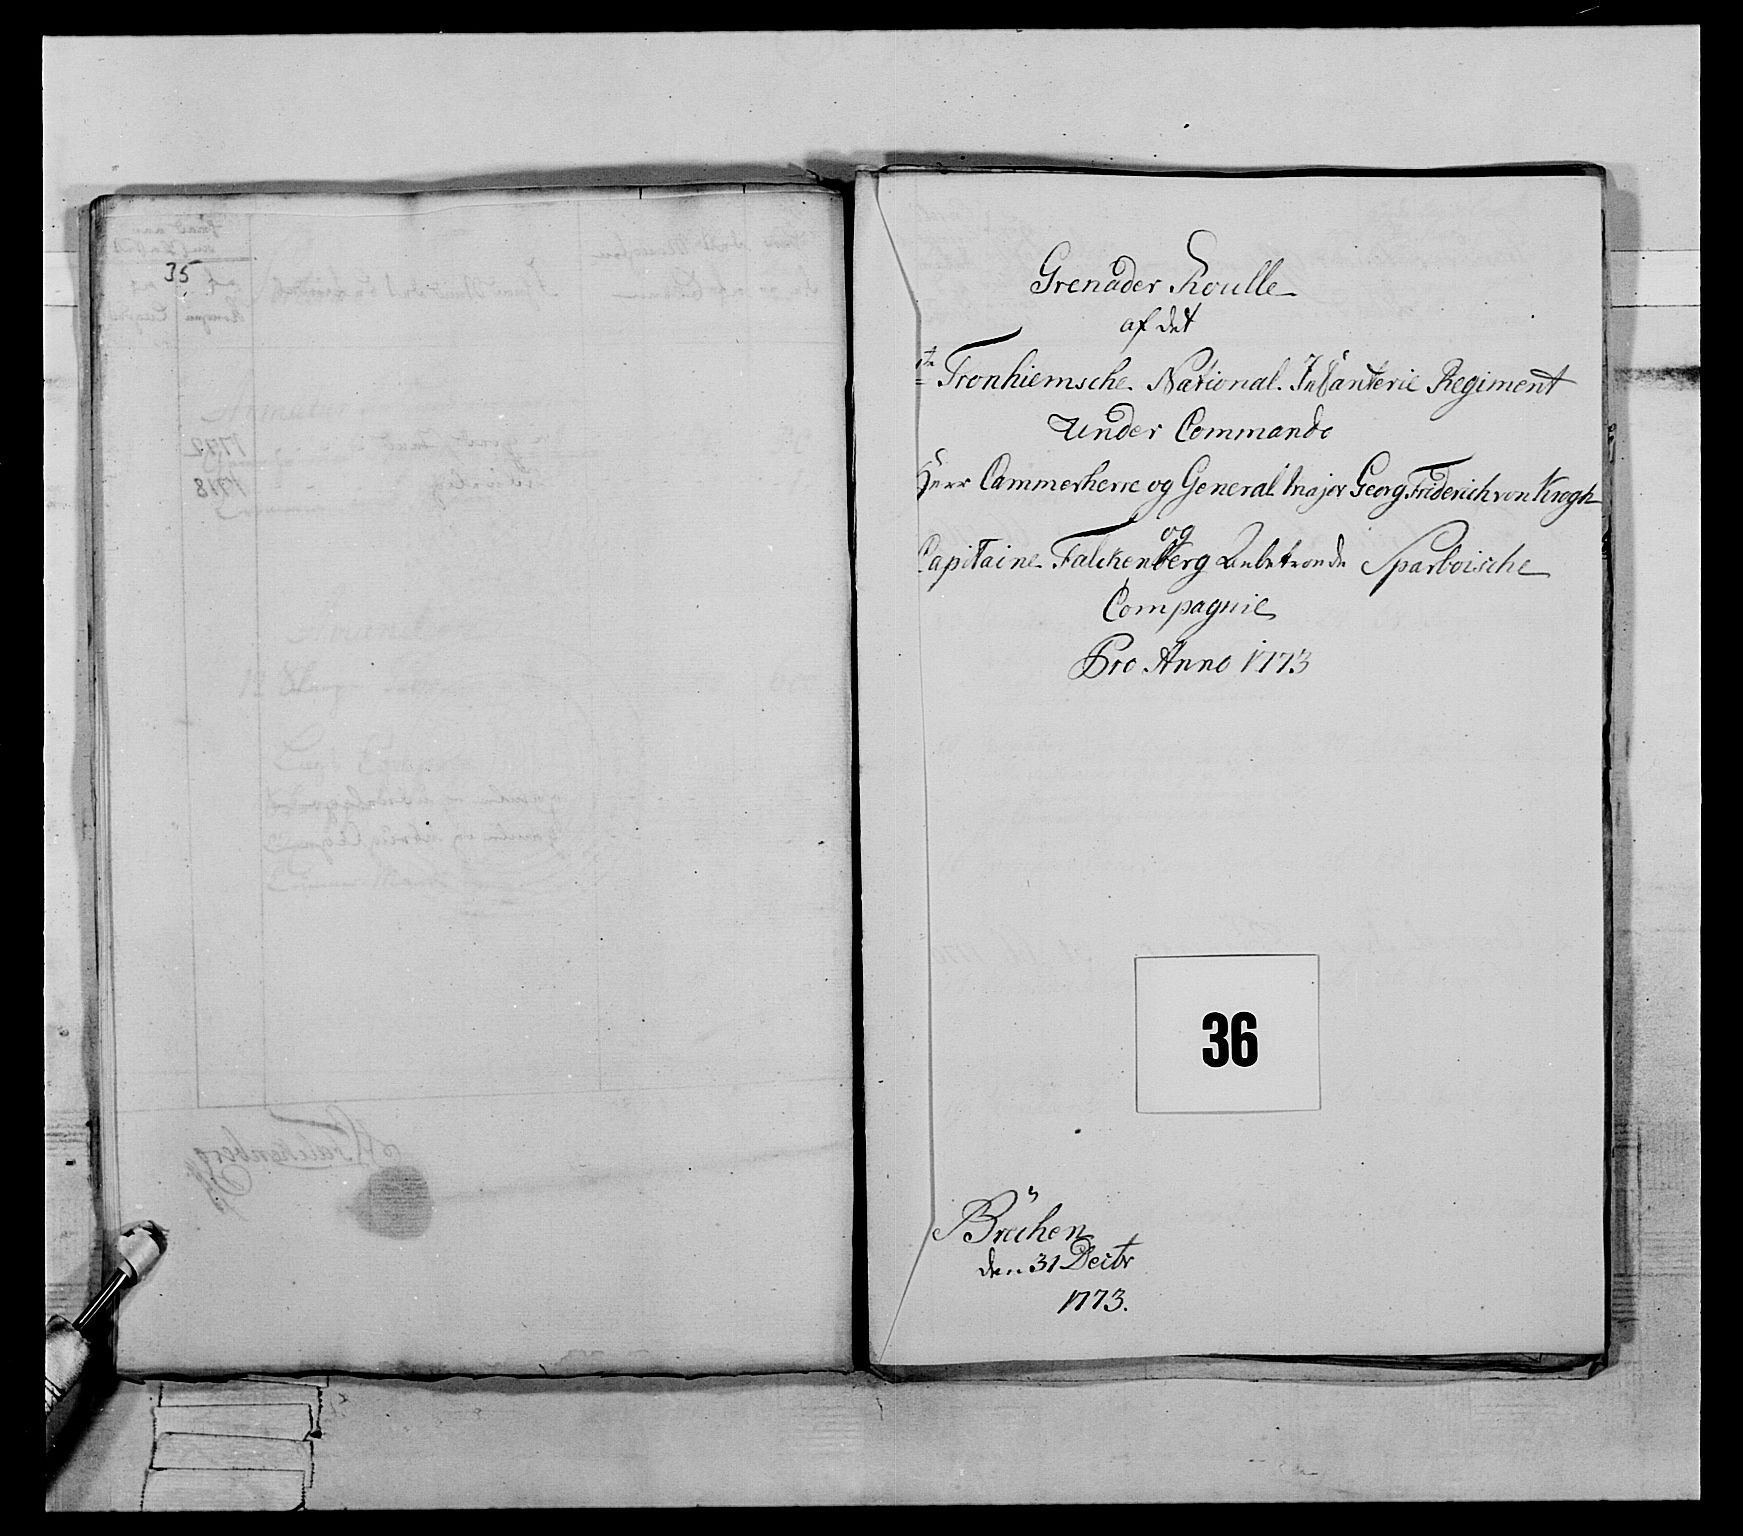 35
Grenader Roulle
af det
te Tronhiemsche National Infanterie Regiment
Under Commando
Herr Cammerherre og General Major Georg Friderich von Krogh
og
Capitaine Falckenberg Anbetroende Sparboische
Compagnie
Pro Anno 1773
36
den 31 Decbr
1773.